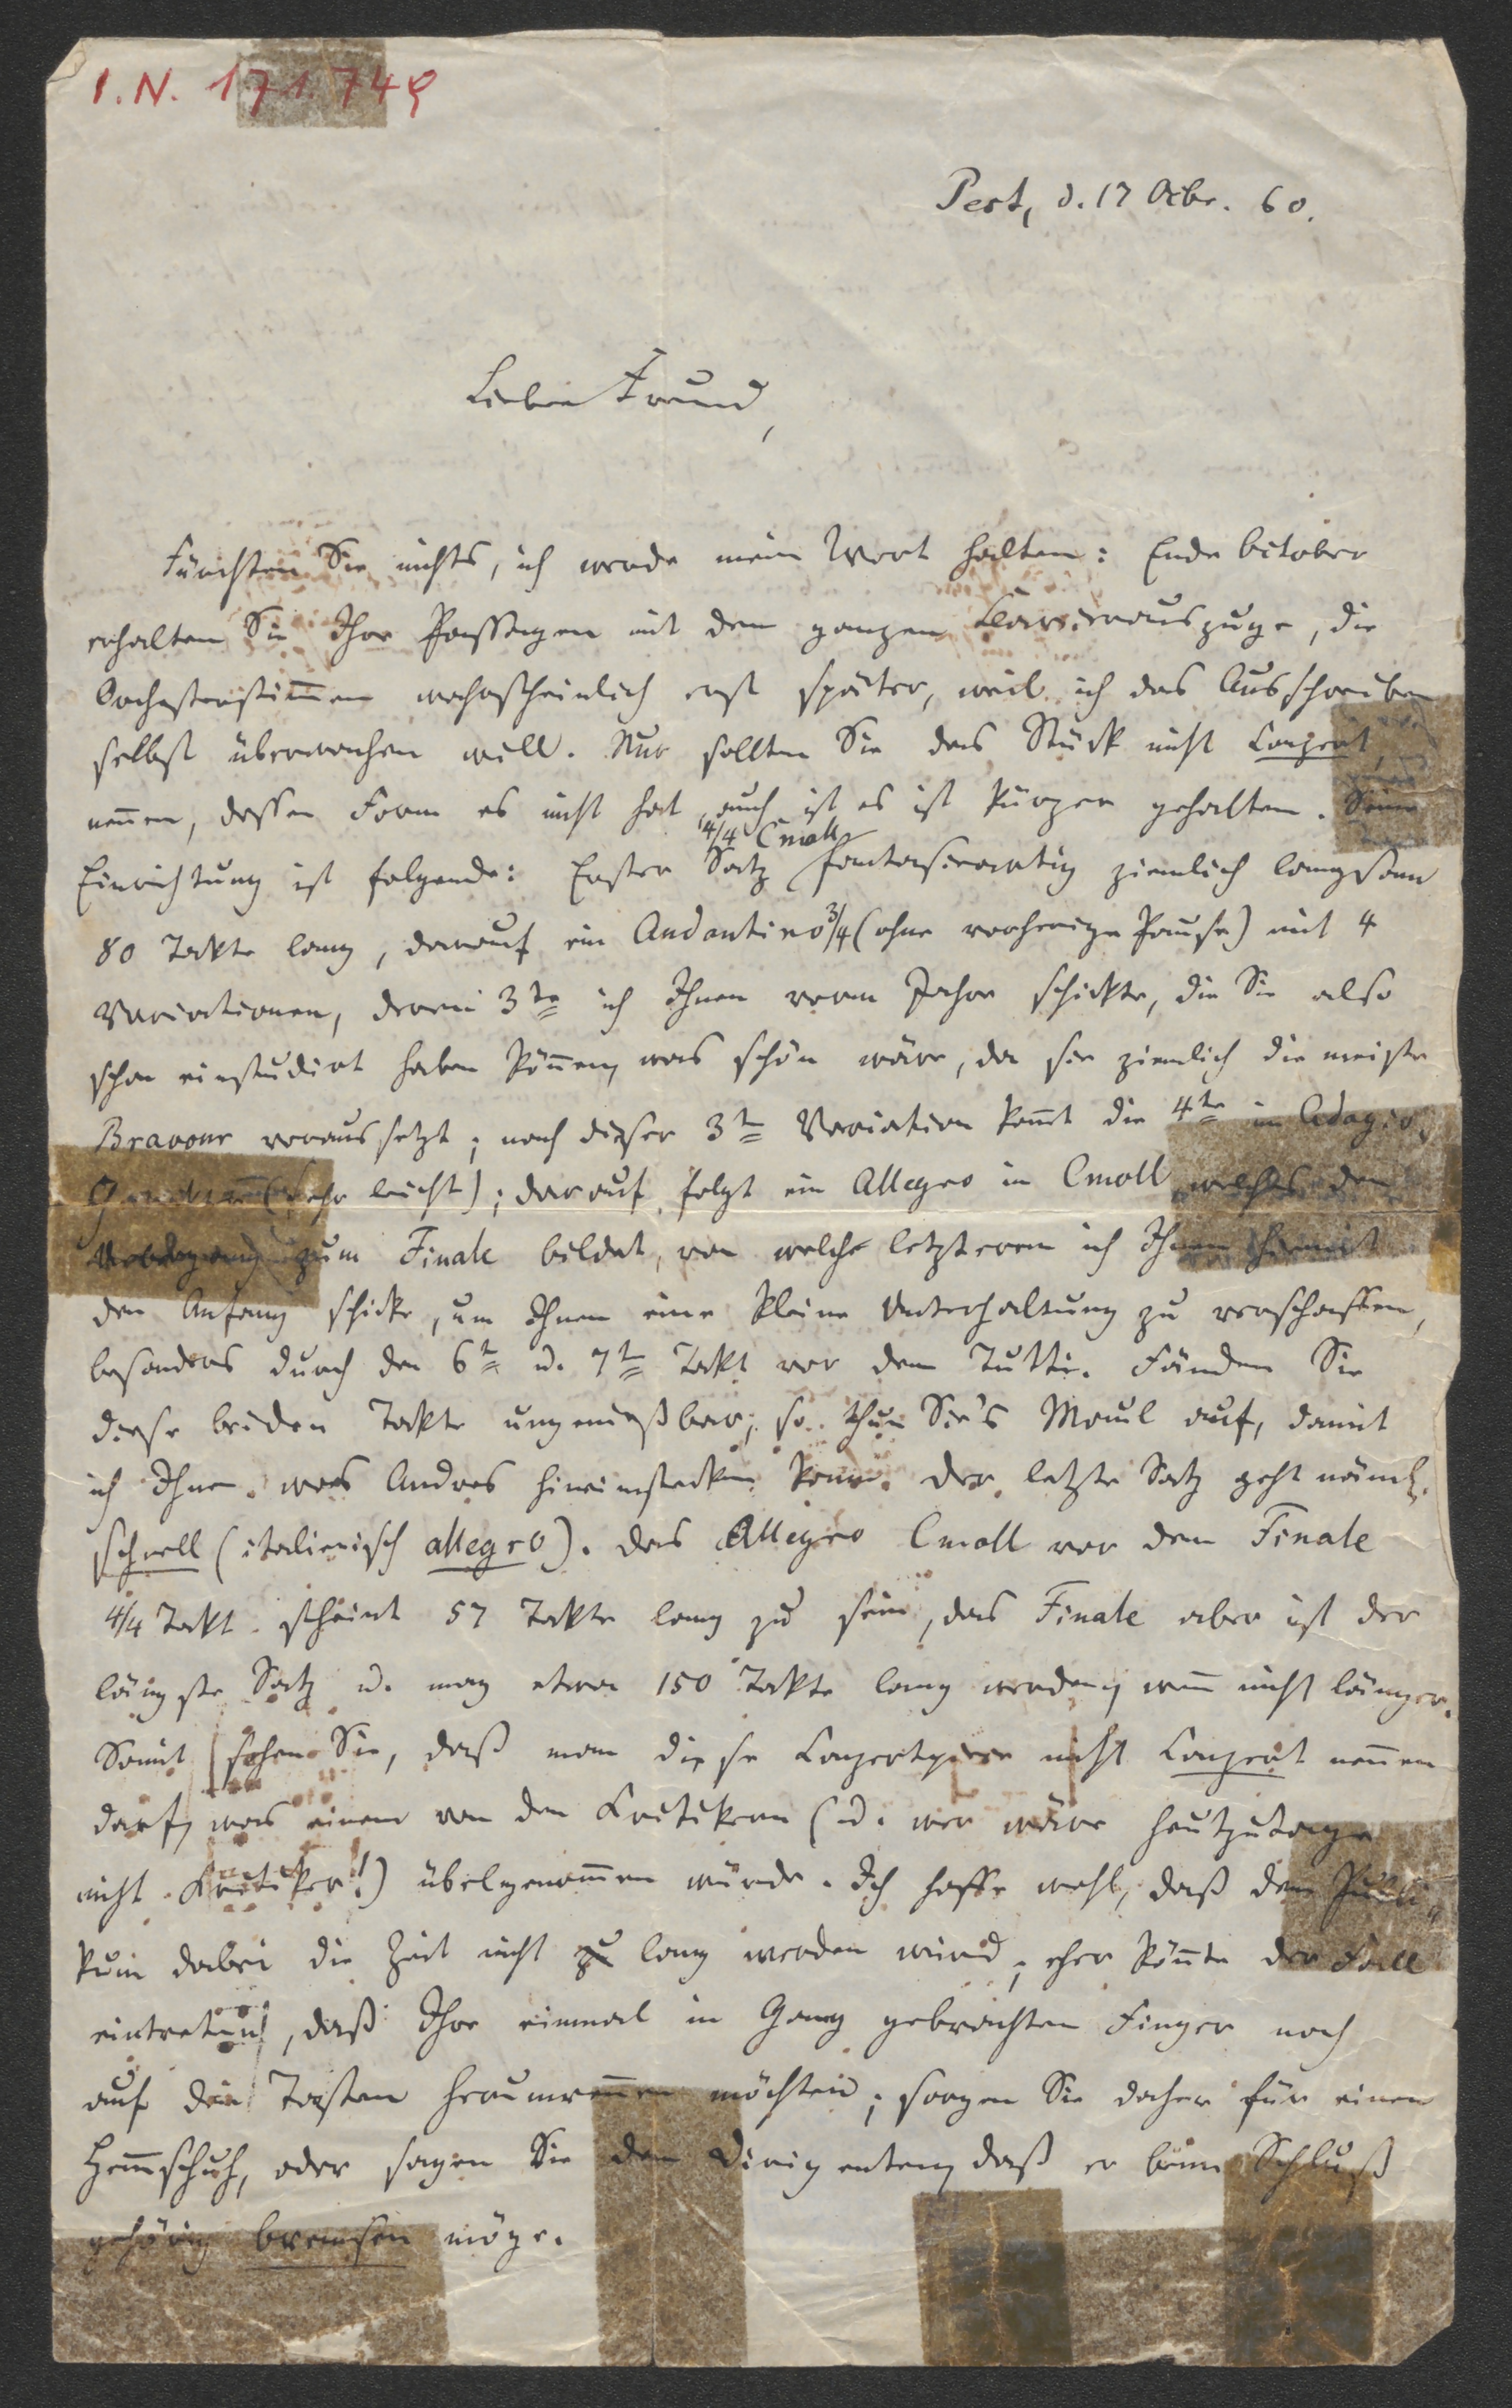 I.N. 171.749
Pest, d. 17 Octbr. 60.
Lieber Freund,
Fürchten Sie nichts, ich werde mein Wort halten: Ende October
erhalten Sie Ihre Passagen mit dem ganzen Clavierauszuge, die
Orchesterstim̄en wahrscheinlich erst später, weil ich das Ausschreiben
selbst überwachen will. Nur sollten Sie das Stück nicht Conzert
nen̄en, dessen Form es nicht hat, auch ist es ist kürzer gehalten. Seine
4/4 Cmoll
Einrichtung ist folgende: Erster Satz fantasieartig ziemlich langsam
80 Takte lang, darauf ein Andantino 3/4 (ohne vorherige Pause) mit 4
Variationen, deren 3te ich Ihnen vorm Jahre schickte, die Sie also
schon einstudirt haben kön̄en, was schön wäre, da sie ziemlich die meiste
Bravour voraussetzt; nach dieser 3t Variation kom̄t die 4te im Adagio
(sehr leicht); darauf folgt ein Allegro in Cmoll welches den
Uebergang zum Finale bildet, von welche letzterem ich Ihnen hiermit
den Anfang schicke, um Ihnen eine kleine Unterhaltung zu verschaffen,
besonders durch den 6t u. 7t Takt vor dem Tutti. Fänden Sie
diese beiden Takte ungenießbar, so thun Sie's Maul auf, damit
ich Ihnen was Andres hineinstecken kann. Der letzte Satz geht näml.
schnell (italienisch allegro). Das Allegro Cmoll vor dem Finale
4/4 Takt scheint 57 Takte lang zu sein, das Finale aber ist der
längste Satz u. mag etwa 150 Takte lang werden, wen̄ nicht länger.
Somit sehen Sie, daß man diese Conzertpiece nicht Conzert nen̄en
darf, was einem von den Kritikern (u. wer wäre heutzutage
nicht Kritiker!) übelgenom̄en würde. Ich hoffe wohl, daß dem Publi-
kum dabei die Zeit nicht zu lang werden wird, eher kön̄te der Fall
eintreten, daß Ihre einmal in Gang gebrachten Finger noch
auf den Tasten herumren̄en möchten; sorgen Sie daher für einen
Hem̄schuh, oder sagen Sie dem Dirigenten, daß er beim Schluß
gehörig bremsen möge.